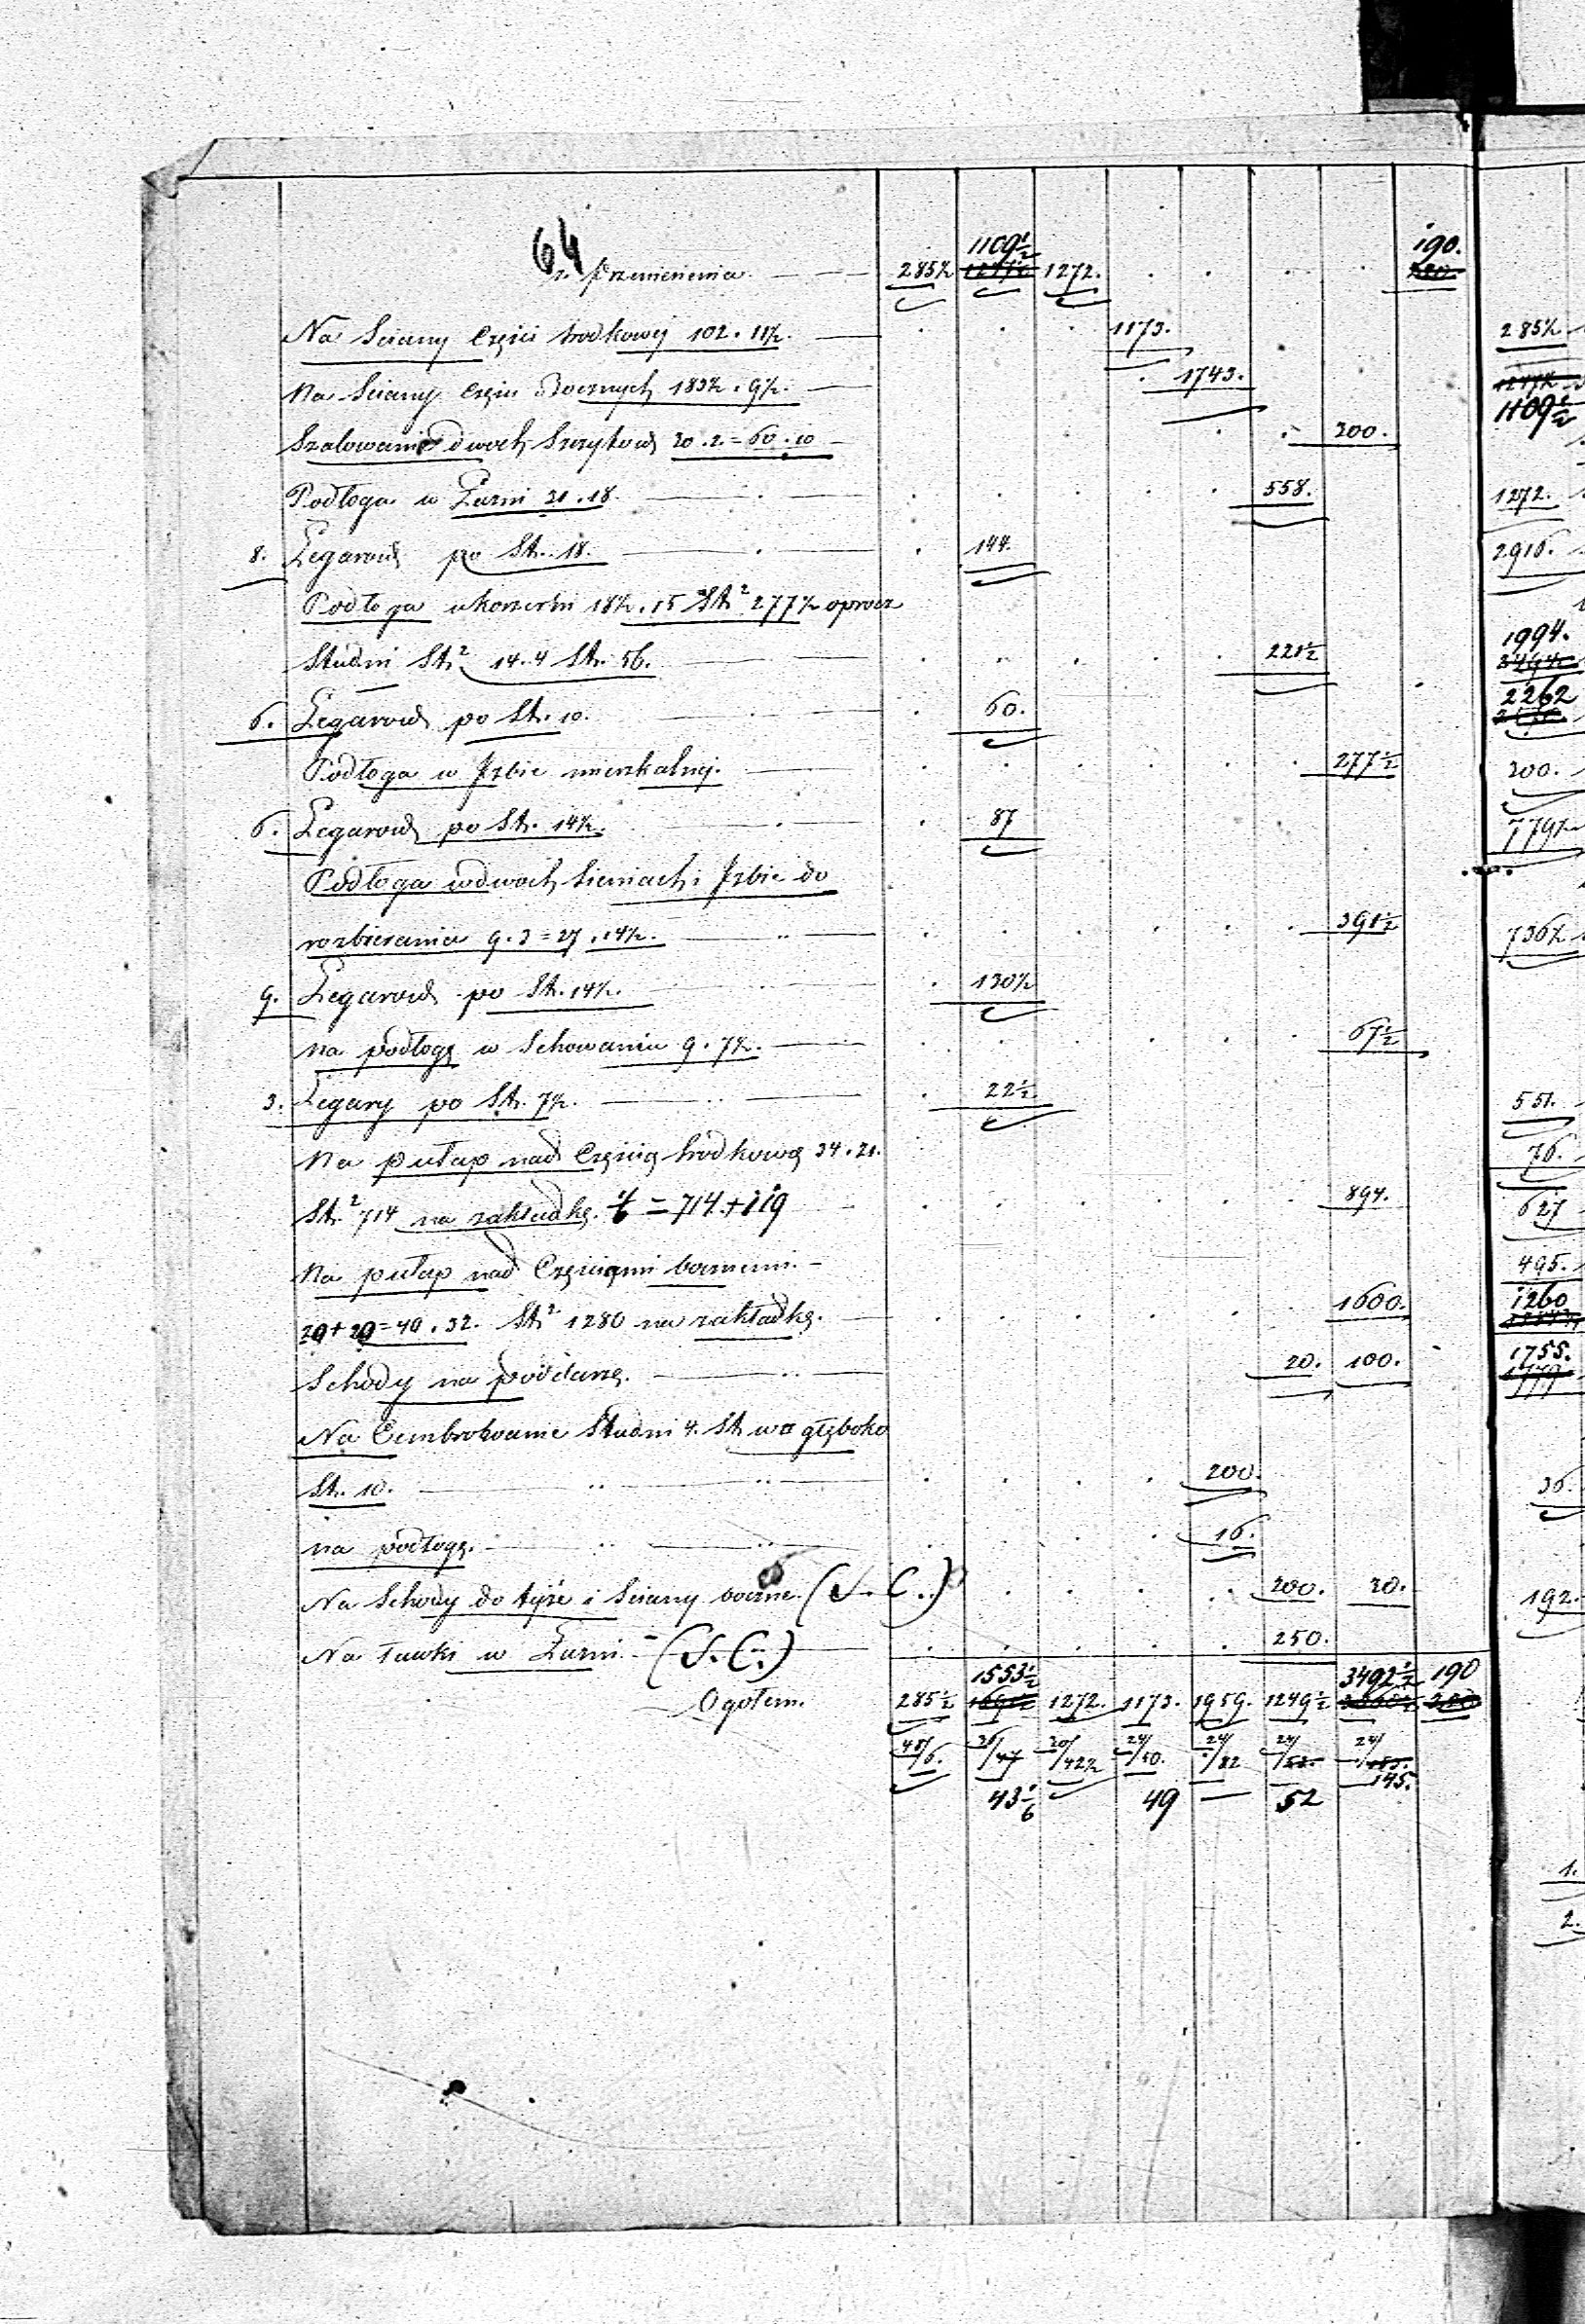 64
z Przeniesienia 285½ 1109½ 1272. 190.
Na Sciany Części srodkowej 102. 11½. 1173.
Na Sciany Części bocznych 183½. 9½. 1743.
Szalowanie dwoch Szczytow 30. 2. = 60. 10 300.
Podłoga w Łazni 31. 18. 558.
8. Legarow po St. 18. 144.
Podłoga 18½. 15 St² 277½ oprocz
Studni St² 14. 4 St. 56. 221½
6. Legarow po St. 10. 60.
Podłoga w Izbie mieszkalnej. 277½
6. Legarow po St. 14½. 87
Podłoga w dwoch Sieniach i Izbie do
rozbierania 9. 3 = 27. 14½. 391½
9. Legarow po St. 14½. 130½
na podłogę w Schowaniu 9. 7½. 67½
3. Legary po St. 7½. 22½
Na pułap nad Częścią srodkową 34. 21.
St.² 714 na zakładkę. = 714 + 119 894.
Na pułap nad Częściami bocznemi.
20 + 20 = 40. 32. St² 1280 na zakładkę. 1600.
Schody na poddasze. 20. 100.
Na Cembrowanie Studni 4. St w □ głęboko
St. 10. 200.
na podłogę. 16.
Na Schody do tyże i Sciany boczne. (S. C.) 200. 20.
Na ławki w Łazni. (S. C.) 250.
1553½ 3492½ 190
Ogołem. 285½ 1272. 1173. 1959. 1249½
48/6. 36/47 30/42½ 24/50. 24/82 24/53. 24/
145.
43 1/6 49 52
285½
1109½
1272.
2916.
1994.
2262
300.
779½
736½
551.
76.
627
495.
1260
1755.
36.
192.
1.
2.